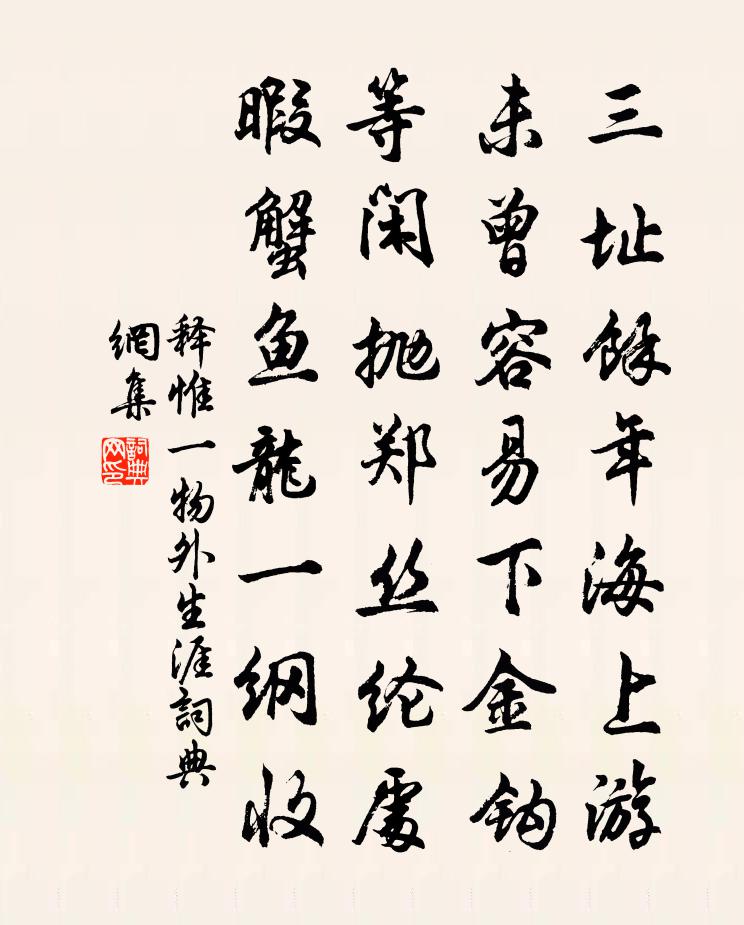 三址餘年海上游
未曾容易下金钩
等闲抛郑丝纶處
暇蟹鱼龍一纲收
释惟一物外生涯詞典
網集
詞典
网印